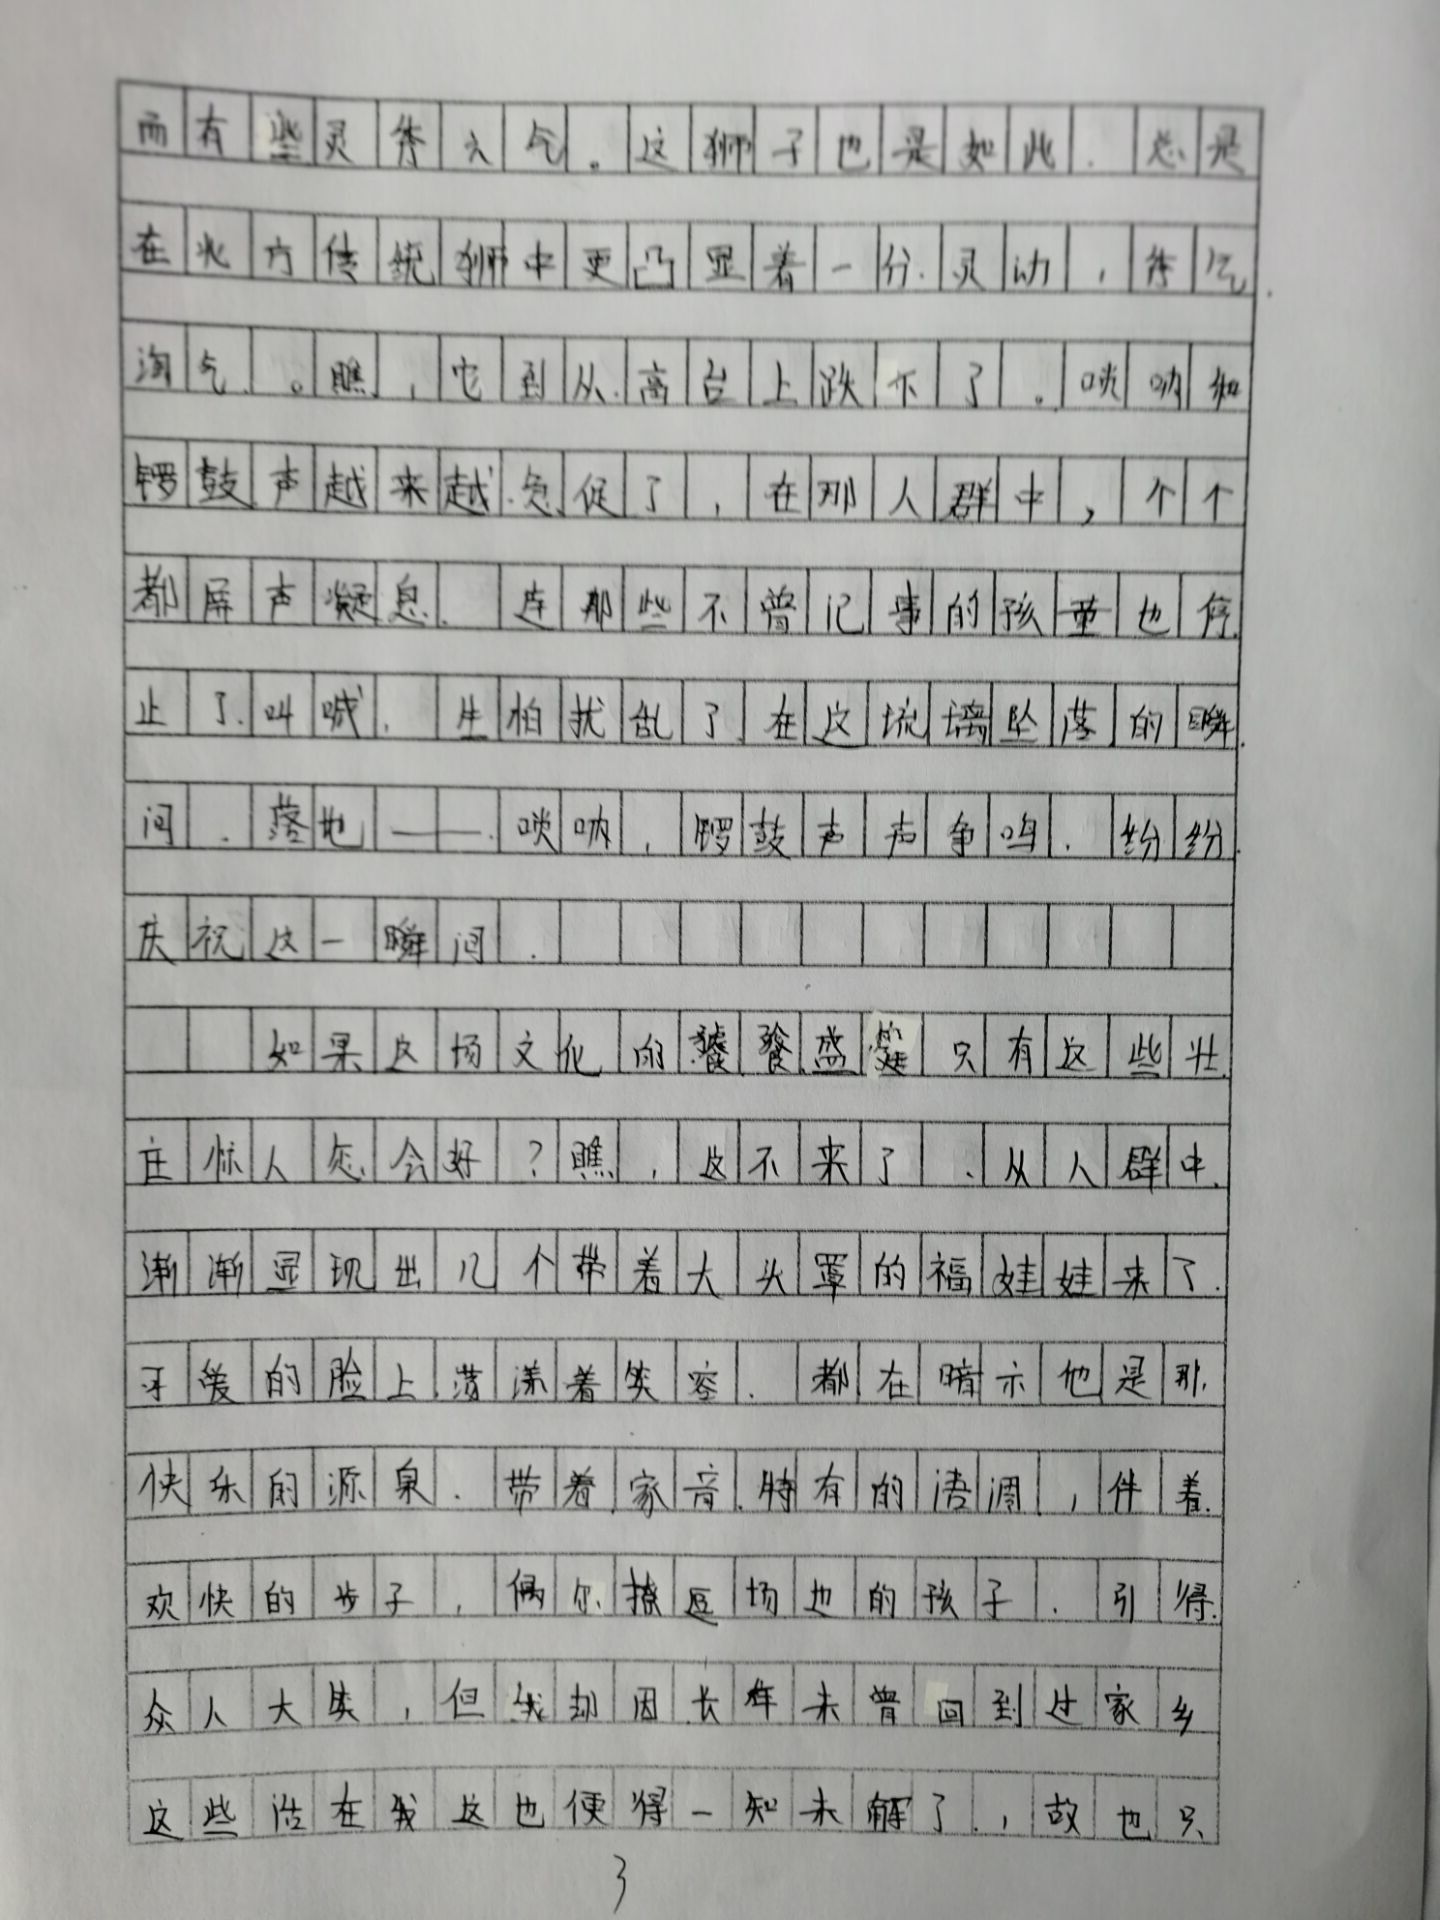 而有些灵俏之气。这狮子也是如此.总是
在北方传统狮中更凸显着一分灵动,俏皮.
淘气。瞧,它到从高台上跌下了。唢呐和
锣鼓声越来越急促了,在那人群中,个个
都屏声凝息.连那些不曾记事的孩童也停
止了叫喊.生怕扰乱了在这琉璃坠落的瞬
间.落地——唢呐,锣鼓声声争鸣.纷纷
庆祝这一瞬间.
如果这场文化的饕餮盛筵只有这些壮
庄惊人怎会好?瞧,这不来了.从人群中
渐渐显现出几个带着大头罩的福娃娃来了.
可爱的脸上荡漾着笑容.都在暗示他是那
快乐的源泉.带着家音特有的语调,伴着
欢快的步子,偶尔撩逗场边的孩子.引得
众人大笑,但我却因长年未曾回到过家乡
这些话在我这也便得一知未解了,故也只
3